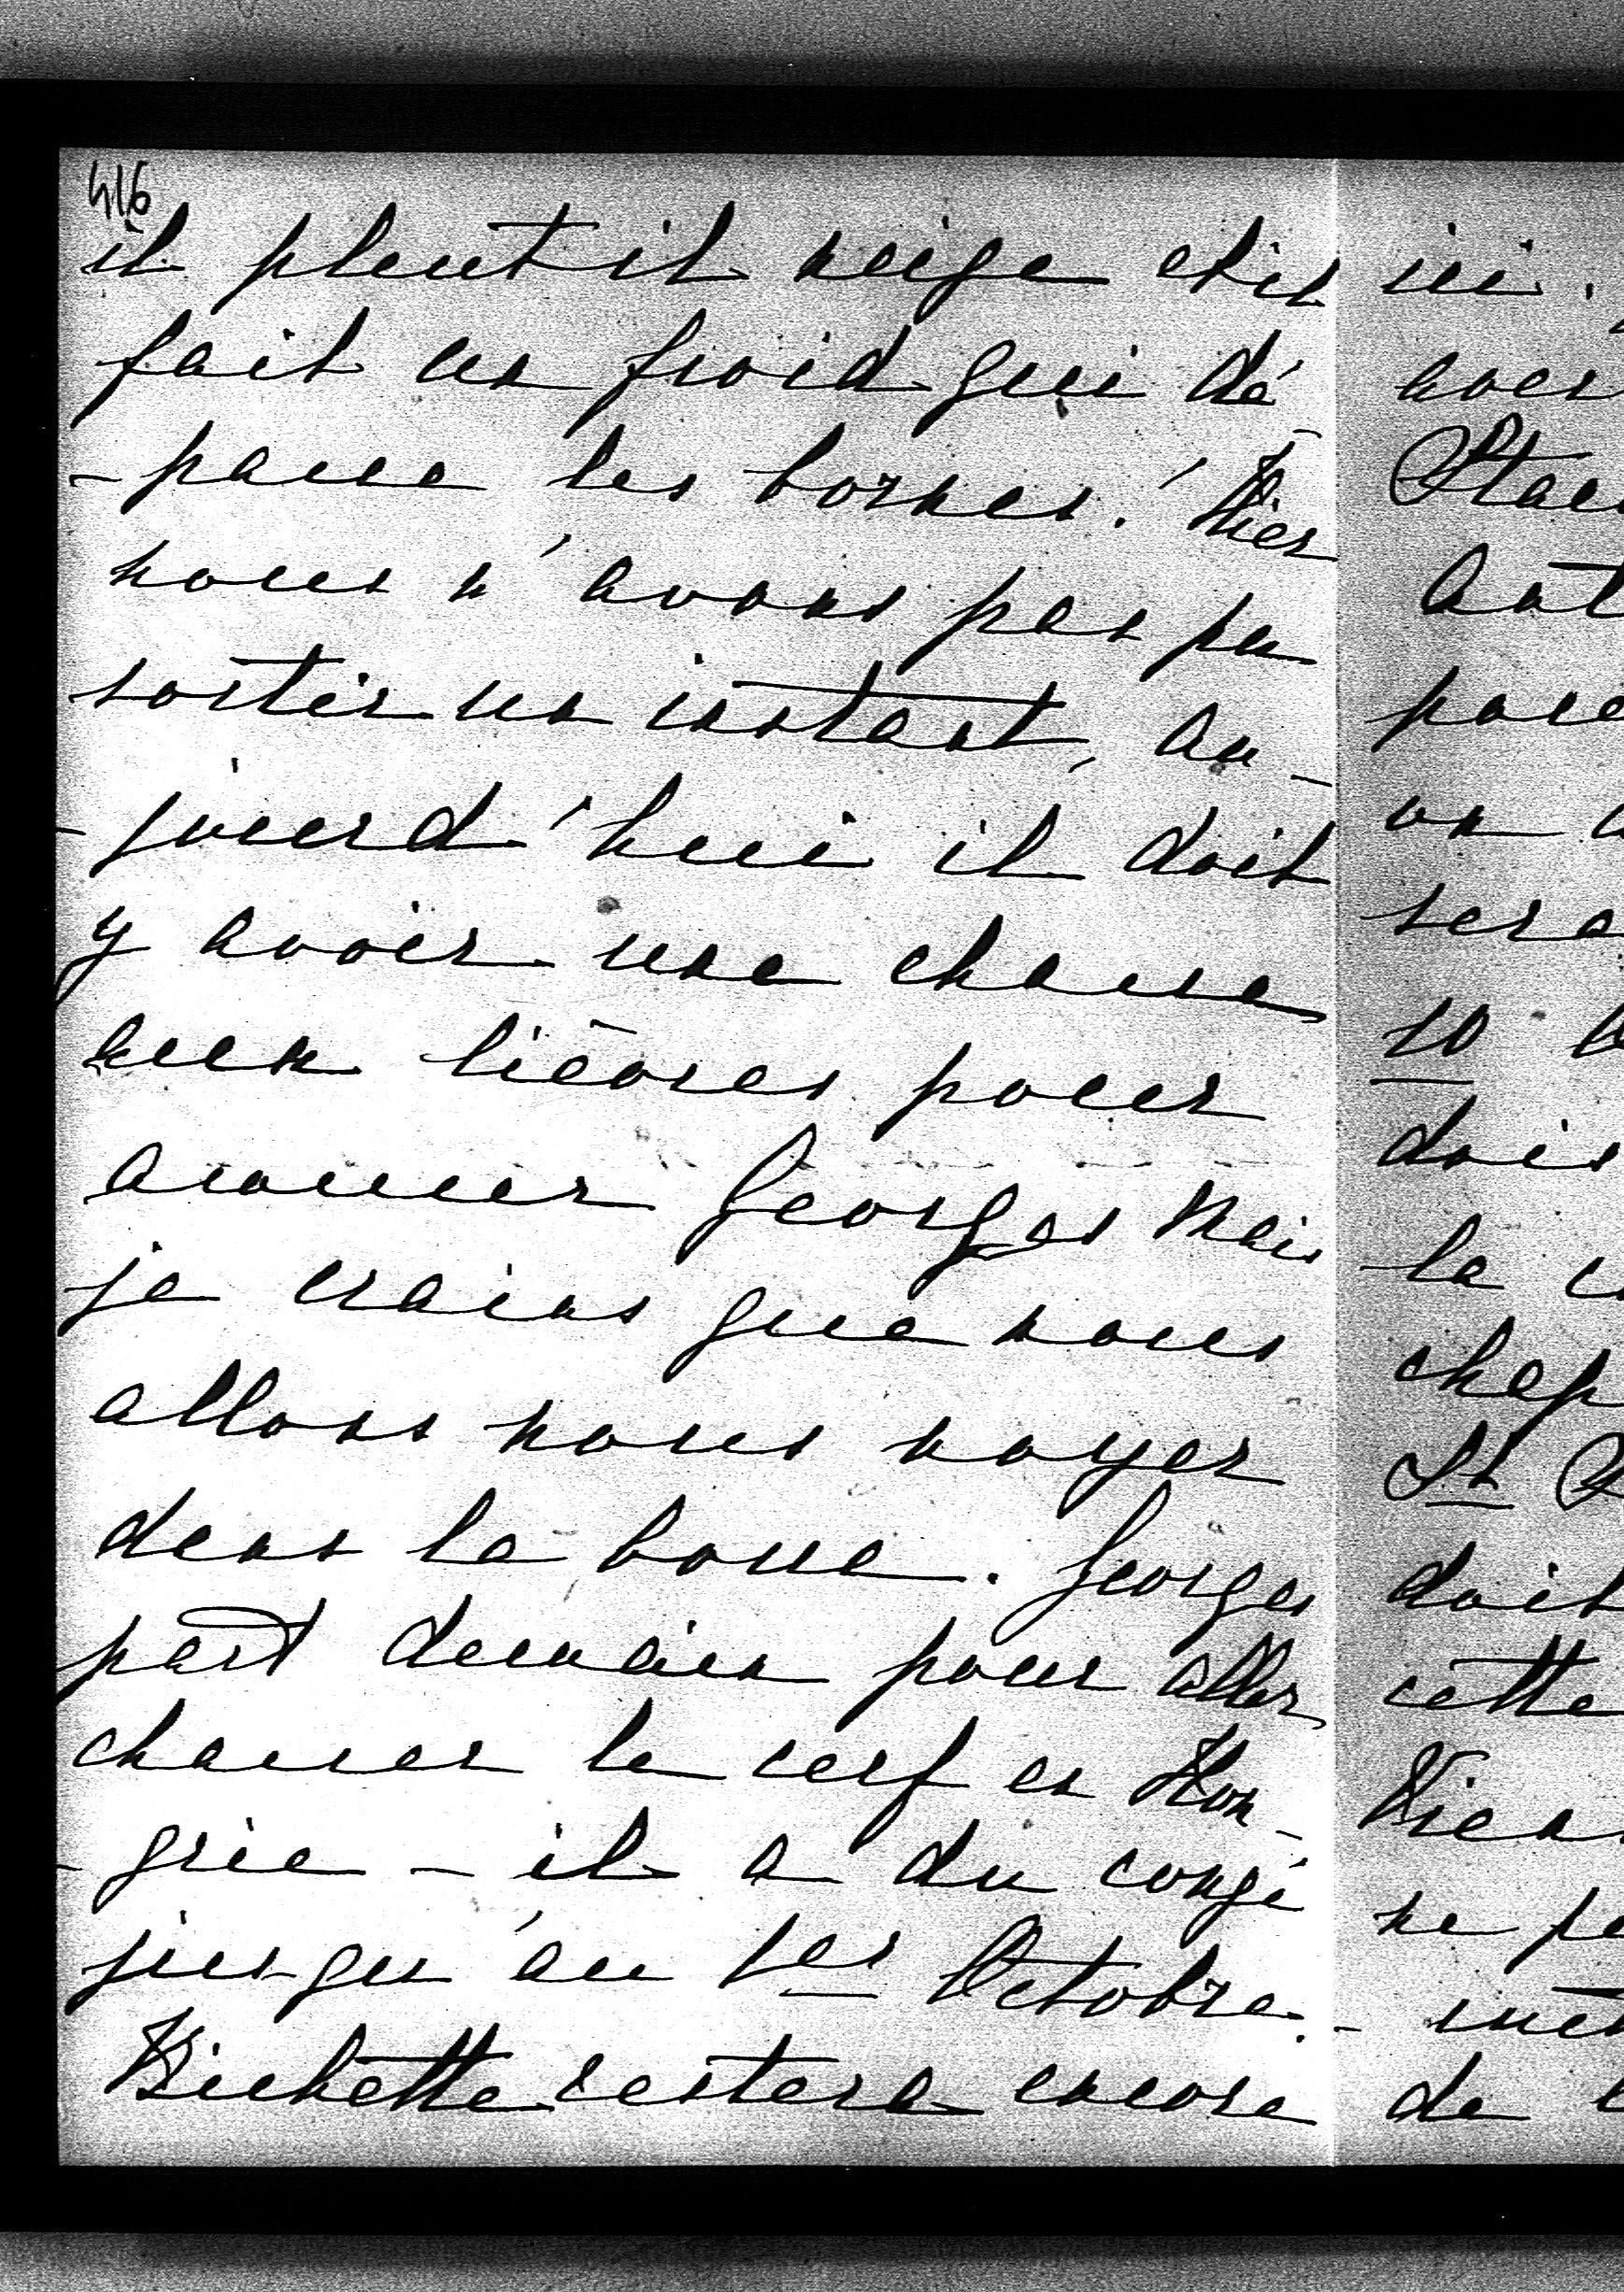 416
il pleut il neige et il
fait un froid qui dé
-passe les bornes! Hier
nous n'avons pas pu
sortir un instant, au-
-jourd'hui il doit
y avoir une chasse
aux lièvres pour
amuser Georges mais
je crains que nous
allons nous noyer
dans la boue. Georges
part demain pour aller
chasser le cerf en Hon-
-grie - il a du congé
jusqu'au 1er Octobre.
Bichette restera encore
ici.
doit
cette
ne
de